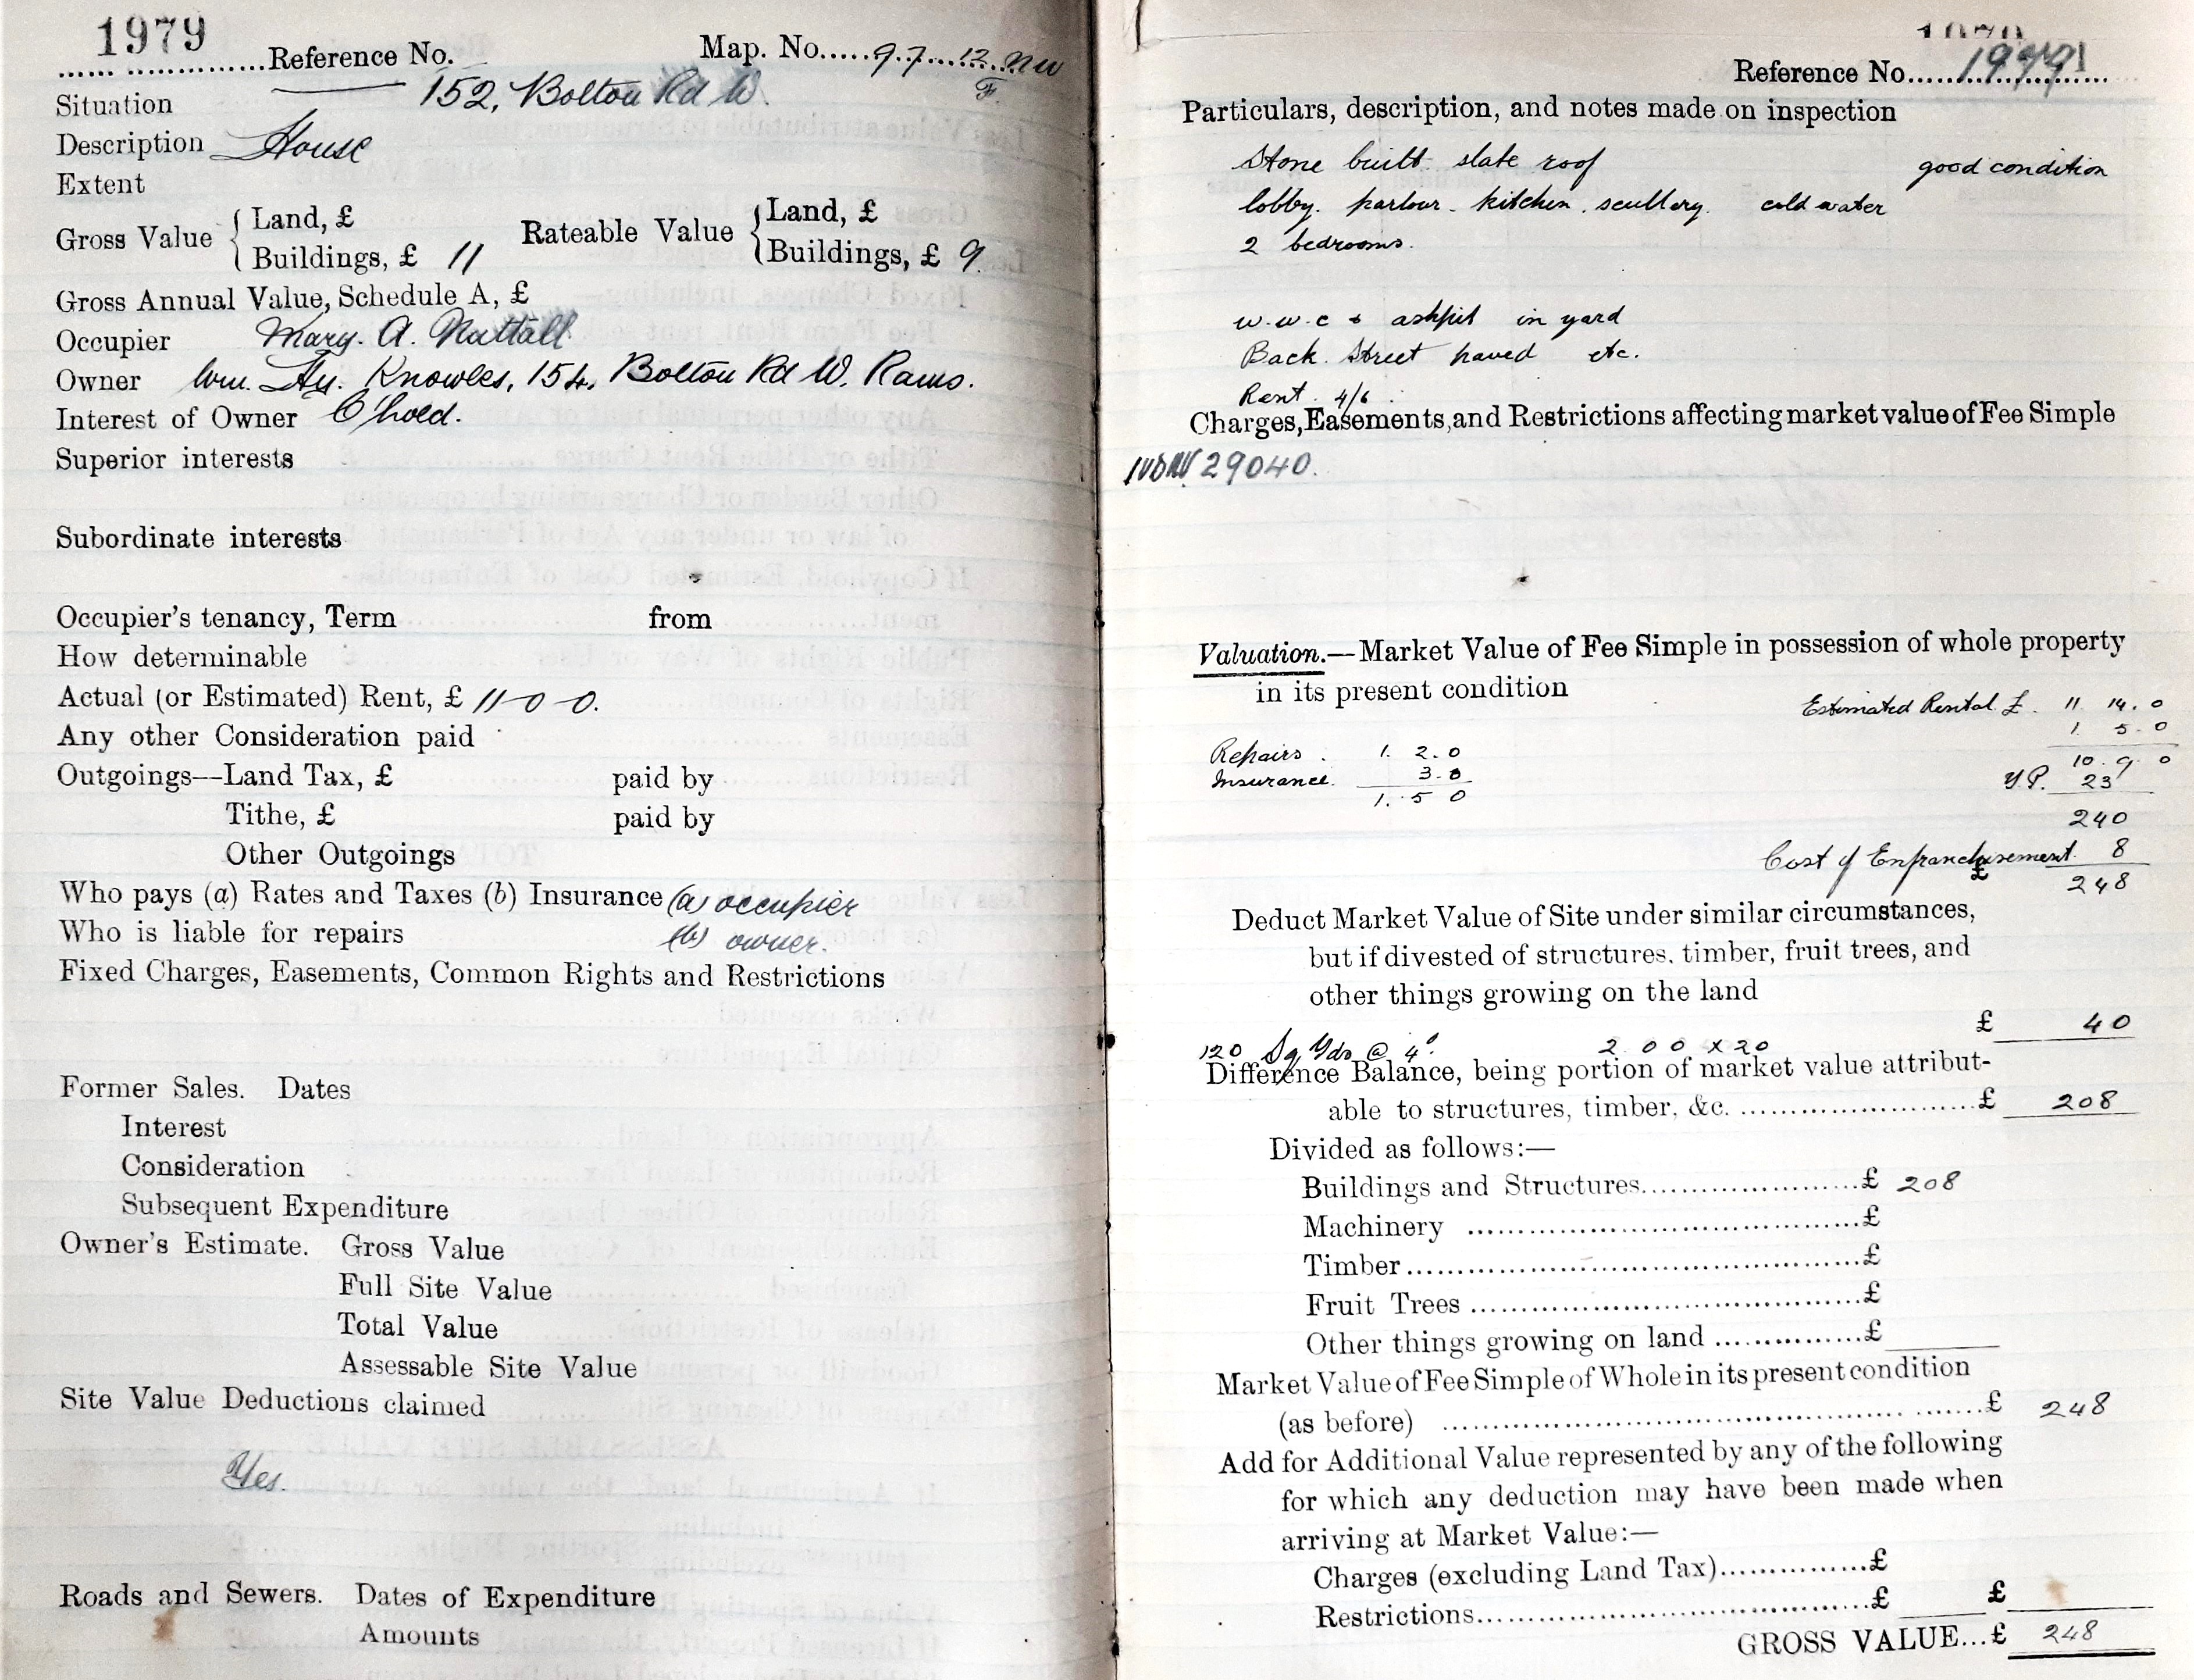 1979
Reference No.
Map. No. 97.12 NW
F.
Situation 152, Bolton Rd W.
Description House
Extent
Gross Value { Land, £
Buildings, £ 11
Rateable Value { Land, £
Buildings, £ 9
Gross Annual Value, Schedule A, £
Occupier Mary. A. Nuttall
Owner Wm. Hy. Knowles, 154, Bolton Rd W. Rams.
Interest of Owner C'hold.
Superior interests
Subordinate interests
Occupier's tenancy, Term from
How determinable
Actual (or Estimated) Rent, £ 11-0-0.
Any other Consideration paid
Outgoings—Land Tax, £ paid by
Tithe, £ paid by
Other Outgoings
Who pays (a) Rates and Taxes (b) Insurance (a) occupier
Who is liable for repairs (b) owner.
Fixed Charges, Easements, Common Rights and Restrictions
Former Sales. Dates
Interest
Consideration
Subsequent Expenditure
Owner's Estimate. Gross Value
Full Site Value
Total Value
Assessable Site Value
Site Value Deductions claimed
Yes.
Roads and Sewers. Dates of Expenditure
Amounts
Reference No.
Particulars, description, and notes made on inspection
Stone built slate roof good condition
lobby. parlour. kitchen. scullery. cold water
2 bedrooms.
w.w.c & ashpit in yard
Back Street paved etc.
Rent. 4/6.
Charges, Easements, and Restrictions affecting market value of Fee Simple
29040.
Valuation.—Market Value of Fee Simple in possession of whole property
in its present condition
Estimated Rental £. 11 14. 0
1. 5. 0
Repairs. 1. 2. 0
10. 9 0
Insurance. 3. 0
Y.P. 23
1. 5 0
240
Cost of Enfranchisement 8
£ 248
Deduct Market Value of Site under similar circumstances,
but if divested of structures, timber, fruit trees, and
other things growing on the land
£ 40
120 Sq Yds @ 4d. 2 0 0 x 20
Difference Balance, being portion of market value attribut-
able to structures, timber, &c. £ 208
Divided as follows:—
Buildings and Structures £ 208
Machinery £
Timber £
Fruit Trees £
Other things growing on land £
Market Value of Fee Simple of Whole in its present condition
(as before) £ 248
Add for Additional Value represented by any of the following
for which any deduction may have been made when
arriving at Market Value:—
Charges (excluding Land Tax) £
Restrictions £ £
GROSS VALUE...£ 248